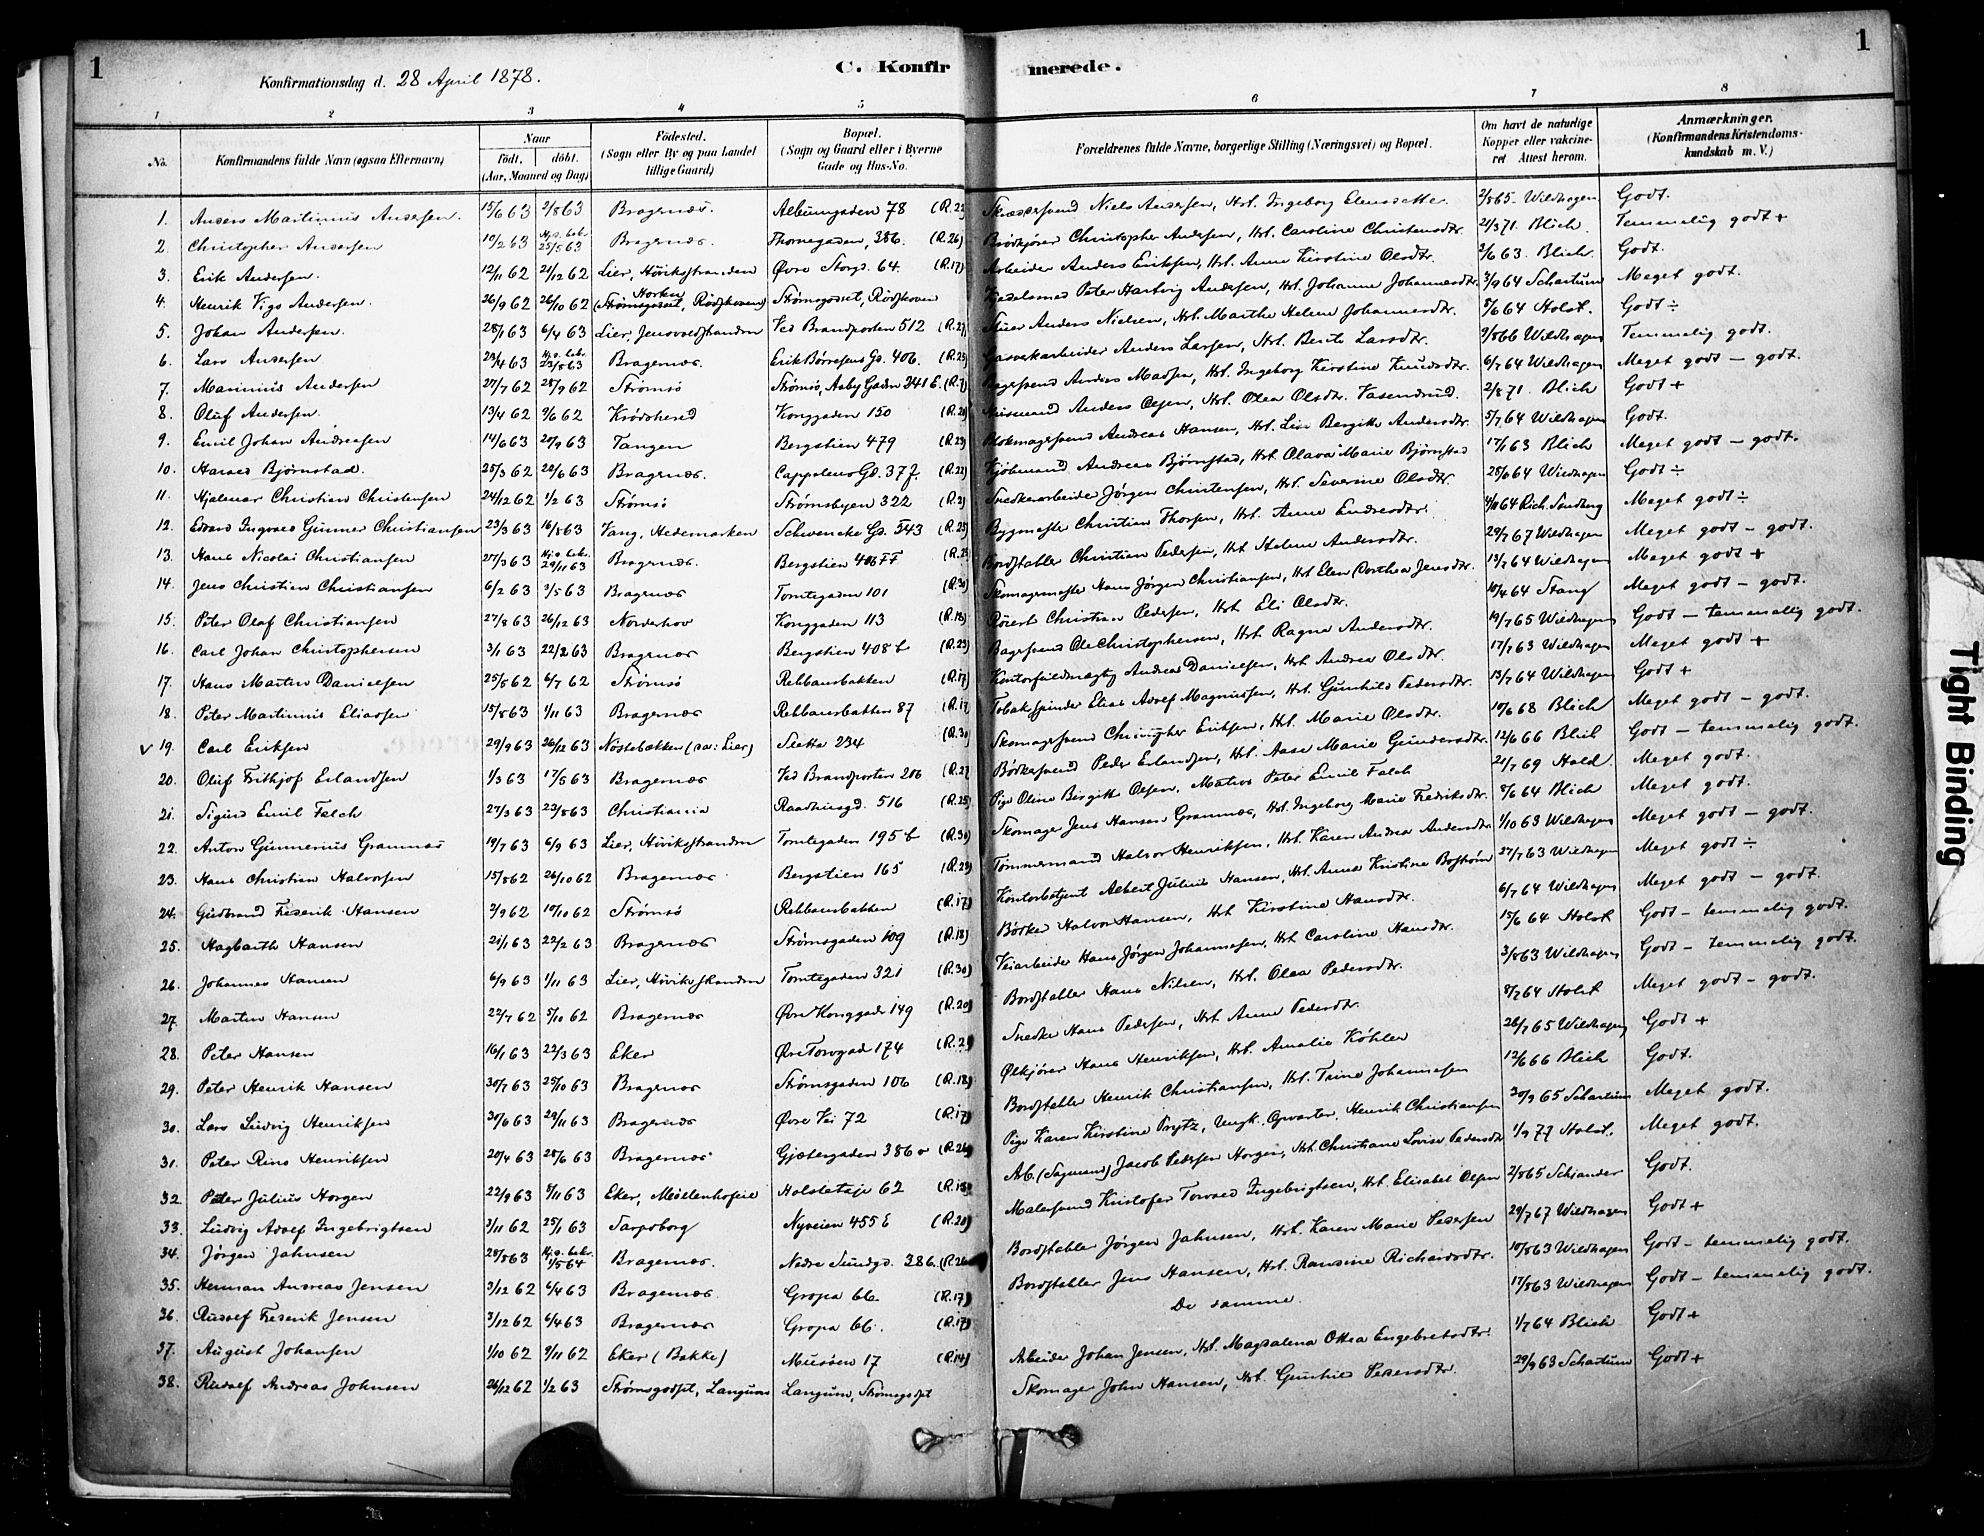 1
Konfirmationsdag d. 28 April 1878.
C. Konfir merede.
1
1 2 3 4 5 6 7 8
No. Konfirmandens fulde Navn (ogsaa Efternavn) Naar født. døbt. (Aar, Maaned og Dag) Fødested. (Sogn eller By og paa Landet tillige Gaard) Bopæl. (Sogn og Gaard eller i Byerne Gade og Hus-No. Forældrenes fulde Navne, borgerlige Stilling (Næringsvei) og Bopæl. Om havt de naturlige Kopper eller vakcineret Attest herom. Anmærkninger. (Konfirmandens Kristendomskundskab m. V.)
1. Anders Martinius Andersen. 15/6 63 2/8 63 Bragernæs. Albumgaden 78 Niels Andersen, Hst. Ingeborg 2/8 65 Wildhagen Godt.
2. Christopher Andersen 10/2 63 Hj.d. bek. 25/5 63 Bragernæs. Thornegaden, 386. (R.26) Christopher Andersen, Hst. Caroline Christensdtr. 21/3 71 Blich. Temmelig godt +
3. Erik Andersen. 12/11 62 21/12 62 Lier, Høviksstranden Øvre Storgd. 64. (R.17) Arbeider Anders Eriksen, Hst. Anne Kirstine Olsdtr. 2/6 63. Blich Godt.
4. Henrik Vigo Andersen. 26/9 62 26/10 62 Horten (Strømsgodset, Rødskoven) Strømsgodset, Rødskoven Peter Hartvig Andersen, Hst. Johanne Johannesdtr. 3/9 64 Schartum Meget godt.
5. Johan Andersen. 28/1 63 6/4 63 Lier, Jensvoldstranden Ved Brandposten 512 (R.27) Anders Nielsen, Hst. Marthe Helene Johannesdtr. 8/6 64 Holst. Godt ÷
6. Lars Andersen 23/4 63 Hj.d. bek. 23/8 63 Bragernæs. Erik Børresens Gd. 406. (R.25) Garverarbeider Anders Larsen, Hst. Berte Larsdtr. 9/8 66 Wildhagen Temmelig godt.
7. Marinius Andersen 27/7 62 28/9 62 Strømsø Strømsø, Aaby Gaden 241 E. (R.7) Bagersvend Anders Madsen, Hst. Ingeborg Kirstine Knudsdtr. 6/7 64 Wildhagen Meget godt — godt.
8. Oluf Andersen. 13/4 62 9/6 62 Krødshered Konggaden 150 (R.20) Anders Olsen, Hst. Olea Olsdtr. Vasendrud. 2/8 71. Blich Godt +
9. Emil Johan Andreasen 14/6 63 20/9 63 Tangen Bergstien 479 (R.23) Andreas Hansen, Hst. Lise Bergitte Andersdtr. 5/7 64 Wildhagen Godt.
10. Harald Bjørnstad. 25/3 62 28/6 63 Bragernæs. Cappelens Gd. 37 f. (R.22) Kjøbmand Andreas Bjørnstad, Hst. Olava Marie Bjørnstad 17/1 63 Blich Meget godt — godt.
11. Hjalmar Christian Christensen 24/12 62 1/2 63 Strømsø Strømsbyen 322 (R.2) Snedkerarbeider Jørgen Christensen, Hst. Severine Olsdtr. 25/6 64 Wildhagen Godt ÷
12. Edvard Ingvald Gunner Christiansen 23/3 63 16/8 63 Vang, Hedemarken Schwencke Gd. 543 (R.25) Bygmester Christian Thorsen, Hst. Anne Endresdtr. 4/11 64 Rich. Sundberg Meget godt ÷
13. Hans Nicolai Christiansen 27/3 63 Hj.d. bek. 29/11 63 Bragernæs. Bergstien 406 FF (R.23 Bordstabler Christian Pedersen, Hst. Helene Andersdtr. 29/7 67 Wildhagen Meget godt — godt.
14. Jens Christian Christiansen 6/2 63 3/5 63 Bragernæs Tomtegaden 101 (R.30) Skomagermester Hans Jørgen Christiansen, Hst Elen Dorthea Jensdtr. 13/7 64 Wildhagen Meget godt +
15. Peter Olaf Christiansen 27/8 63 26/12 63 Norderhov Konggaden 113 (R.18) Christian Pedersen, Hst Eli Olsdtr. 10/4 64 Stang Meget godt — godt.
16. Carl Johan Christophersen 3/1 63 22/2 63 Bragernæs Bergstien 408 b (R.23) Bagersvend Ole Christophersen, Hst Ragne Andersdtr. 19/7 65 Wildhagen Godt — temmelig godt.
17. Hans Martin Danielsen 25/5 62 6/7 62 Strømsø Rebbansbakken (R.17) Andreas Danielsen, Hst Andrea Olsdtr. 17/7 63 Wildhagen Meget godt +
18. Peter Martinius Eliassen 15/8 63 1/11 63 Bragernæs Rebbansbakken 87 (R.17 Tobakspinder Elias Adolf Magnussen, Hst. Gunhild Pedersdtr. 13/7 64 Wildhagen Godt +
v 19. Carl Eriksen 29/9 63 26/12 63 Nøstebakken (Lier) Sletta 234 (R.30 Skomagersvend Christopher Eriksen, Hst. Marie Olsdtr. 10/6 68 Blich Meget godt — godt.
20. Oluf Frithjof Erlandsen 1/3 63 17/5 63 Bragernæs Ved Brandposten 206 (R.27 Bødkersvend Peder Erlandsen, Hst. Aase Marie Gundersdtr. 12/6 66 Blich Godt — temmelig godt.
21. Sigurd Emil Falch 27/3 63 23/8 63 Christiania Raadhusgd. 516 (R.25) Pige Oline Birgitte Olsen, Matros Peter Emil Falch 21/7 69 Hald. Meget godt.
22. Anton Gunnerius Grannæs 19/7 63 6/9 63 Lier, Høviksstranden Tomtegaden 195 b (R.30) Skomager Jens Hansen Grannæs, Hst. Ingeborg Marie Fredriksdtr. 8/6 64 Blich Meget godt.
23. Hans Christian Halvorsen 15/8 62 26/10 62 Bragernæs Bergstien 165 (R.23) Tømmermand Halvor Henriksen, Hst. Karen Andrea Andersdtr. 1/10 63 Wildhagen Meget godt — godt.
24. Gudbrand Frederik Hansen 2/9 62 19/10 62 Strømsø Rebbansbakken (R.17) Kontorbetjent Albert Julius Hansen, Hst. Anna Kristine Bostrøm 27/7 63 Wildhagen Meget godt ÷
25. Hagbarth Hansen 21/1 63 22/2 63 Bragernæs Strømsgaden 109 (R.18) Bødker Halvor Hansen, Hst Kirstine Hansdtr. 6/7 64 Wildhagen Meget godt — godt.
26. Johannes Hansen 6/9 63 1/11 63 Lier, Høviksstranden Tomtegaden 321 (R.30) Veiarbeider Hans Jørgen Johannesen, Hst Caroline Hansdtr. 15/6 64 Holst Godt — temmelig godt.
27. Martin Hansen 22/7 62 5/10 62 Bragernæs Øvre Konggade 149 (R.20) Bordstabler Hans Nilsen, Hst. Olea Pedersdtr. 3/8 63 Wildhagen Godt — temmelig godt.
28. Peter Hansen 16/1 63 22/3 63 Eker Øvre Torvgad 174 (R.2 Snedker Hans Pedersen, Hst Anne Pedersdtr. 8/7 64 Holst Meget godt — godt.
29. Peter Henrik Hansen 30/7 63 25/10 63 Bragernæs Strømsgaden 106 (R.18) Ølkjører Hans Henriksen, Hst. Amalie Köhler 26/7 65 Wildhagen Godt +
30. Lars Ludvig Henriksen 30/6 63 29/11 63 Bragernæs Øvre Vei 72 (R.17) Bordstabler Henrik Christiansen, Hst. Trine Johannesen 12/6 66 Blich Godt.
31. Peter Rino Henriksen 20/4 63 28/6 63 Bragernæs Gjætergaden 386 (R.26) Pige Karen Kirstine Prytz, Ungk. Opvarter, Henrik Christiansen 30/9 65 Schartum Meget godt.
32. Peter Julius Horgen 22/9 63 8/11 63 Eker, Møllenhofeie Holstetajе 62 (R.15) Arb. (Sagmand) Jacob Pedersen Horgen, Hst Christiane Lovise Pedersdtr 1/9 77 Holst. Meget godt.
33. Ludvig Adolf Ingebrigtsen 3/11 62 25/1 63 Sarpsborg Nyveien 455 E (R.20) Malersvend Kristofer Torvald Ingebrigtsen, Hst. Elisabet Olsen 2/8 65 Schiander Godt.
34. Jørgen Jahnsen 28/8 63 Hj.d. bek. 1/5 64 Bragernæs. Nedre Sundgd. 386. (R.26 Bordstabler Jørgen Jahnsen, Hst. Karen Marie Pedersen 29/7 67 Wildhagen Godt +
35. Herman Andreas Jensen 3/12 62 6/4 63 Bragernæs. Gropa 66. (R.17) Bordstabler Jens Hansen, Hst. Ransine Richardsdtr. 10/8 63 Wildhagen Godt — temmelig godt.
36. Rudolf Frederik Jensen 3/12 62 6/4 63 Bragernæs Gropa 66. (R.17) De samme. 17/8 63 Wildhagen Godt — temmelig godt.
37. August Johansen 1/10 62 9/11 62 Eker (Bakke) Musøen 17 (R.14) Arbeider Johan Jensen, Hst. Magdalena Ottea Engebretsdtr. 1/7 64 Blich Godt +
38. Rudolf Andreas Johnsen 26/12 62 1/2 63 Strømsgodset, Langum Langum, Strømsgodset Skomager John Hansen, Hst. Gunhild Pedersdtr. 29/9 63 Schartum Godt +
Tight Binding